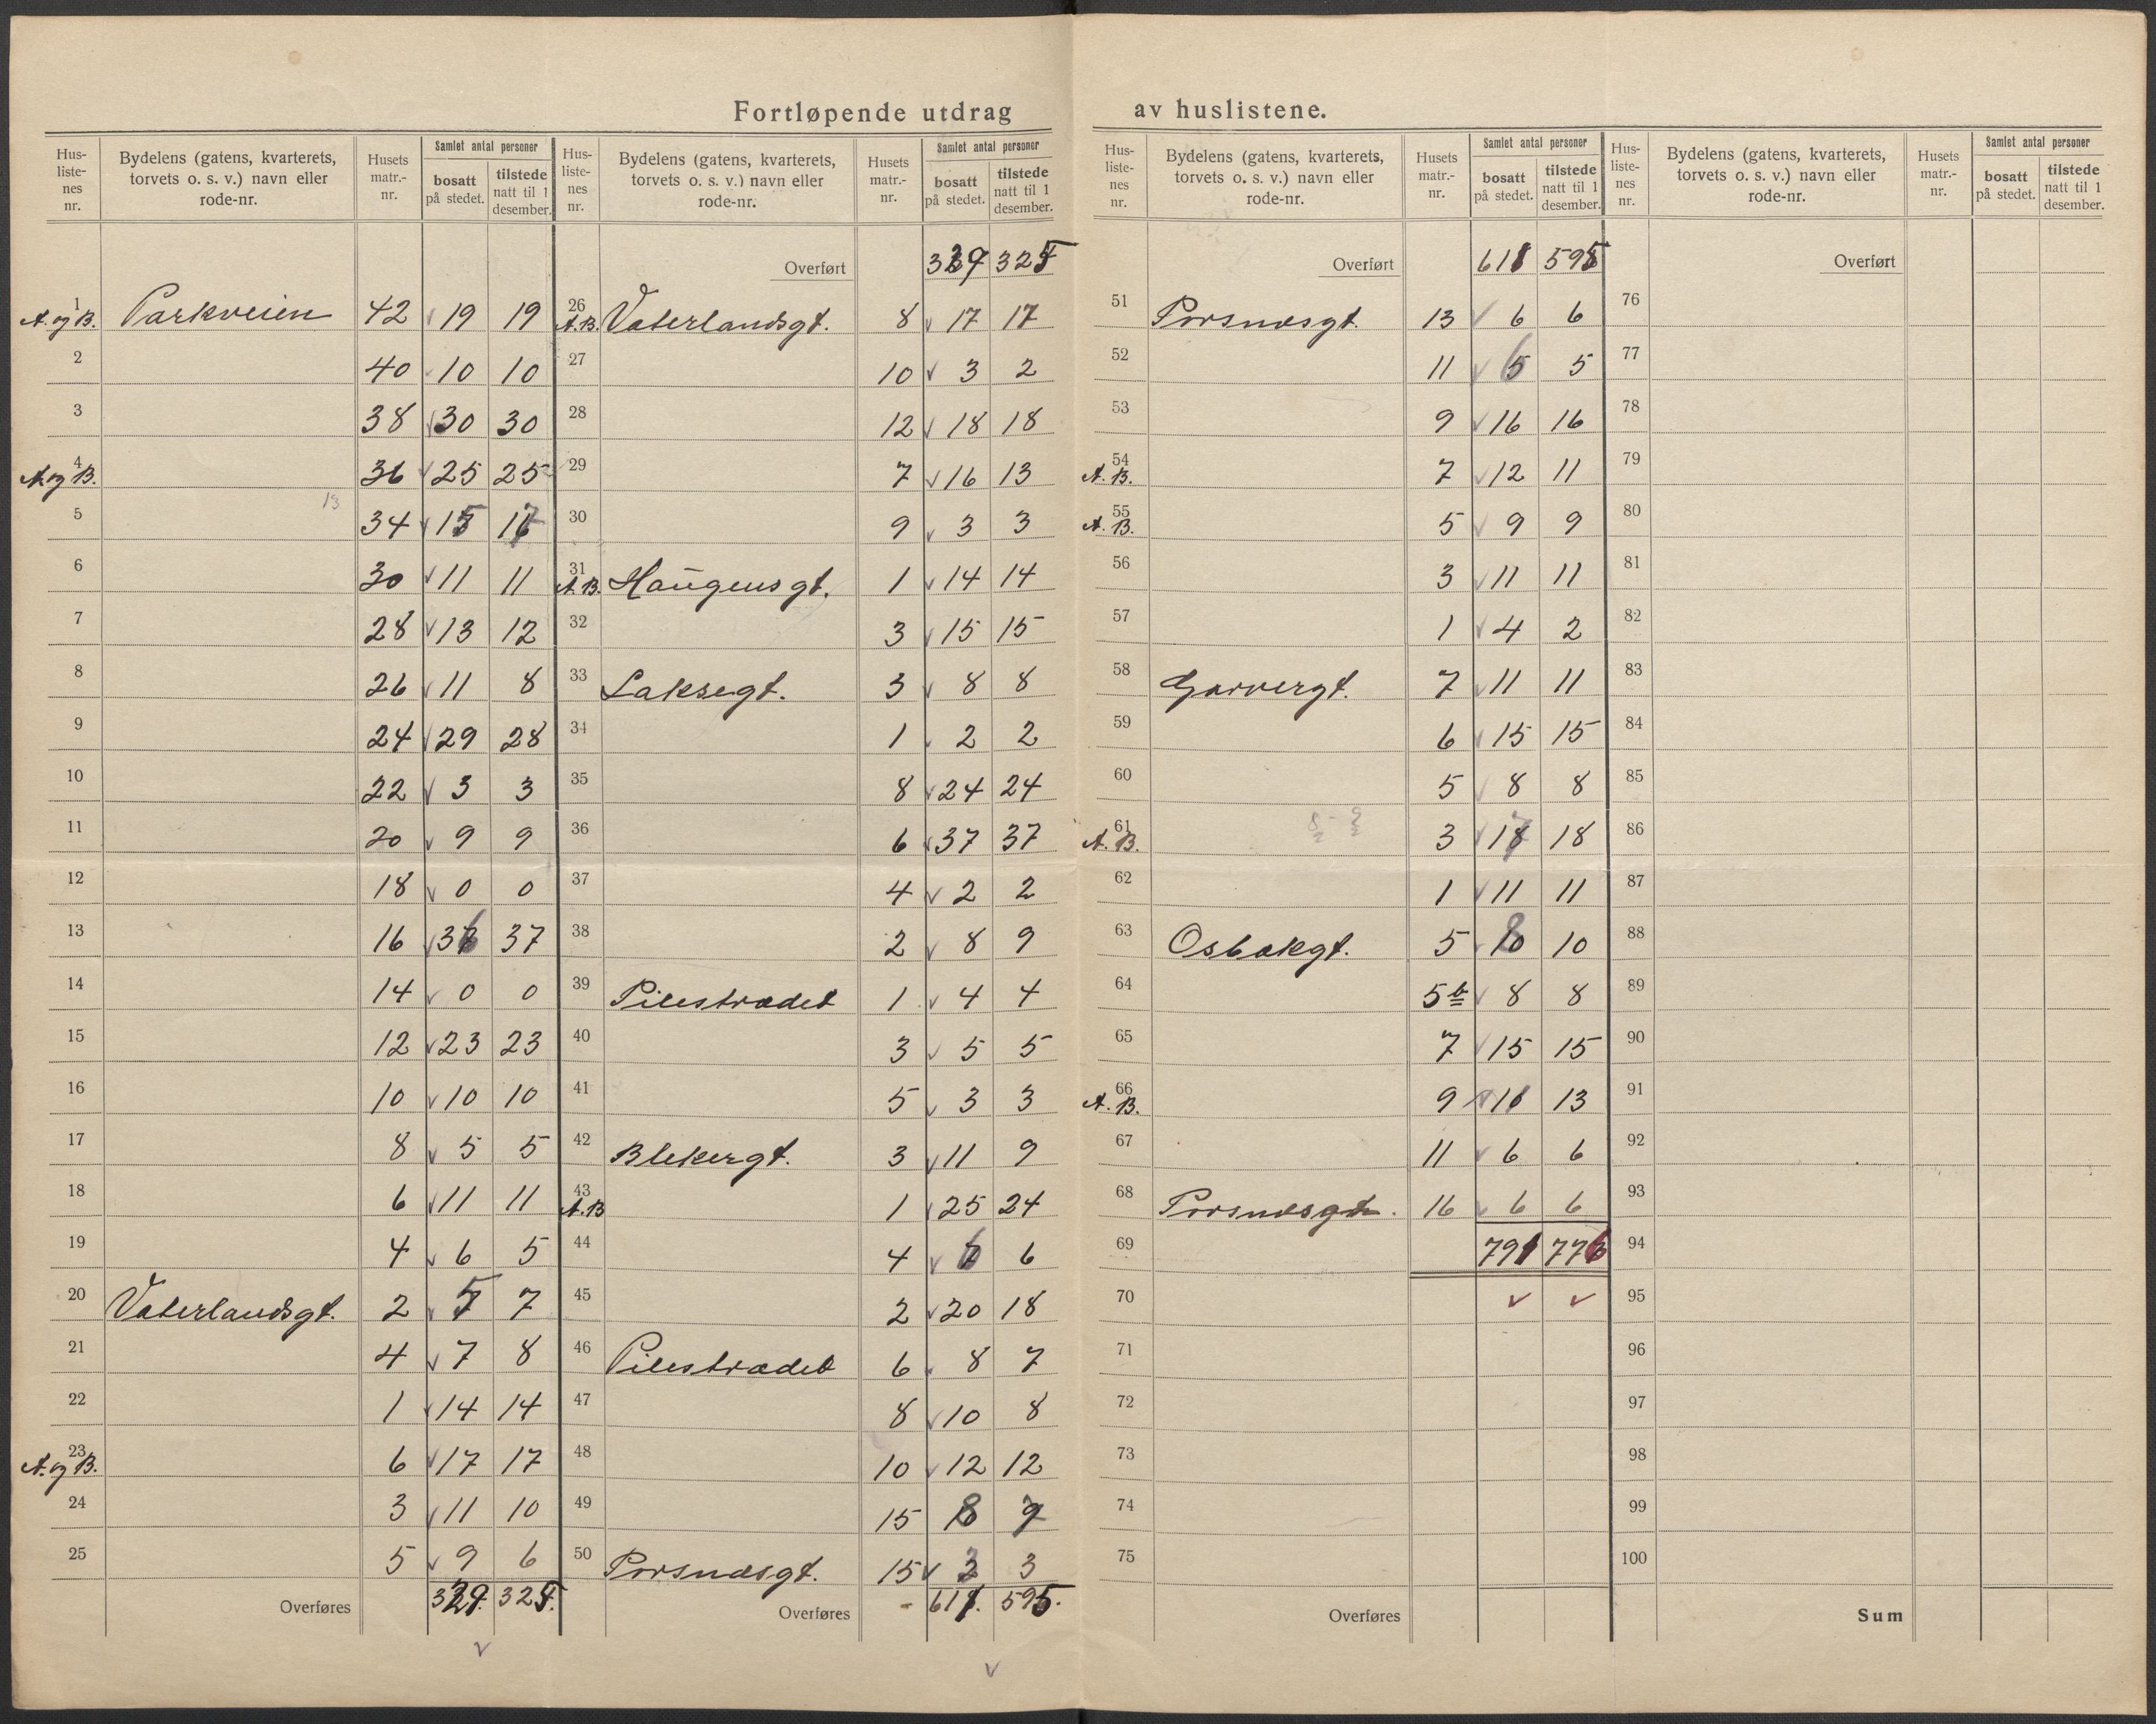 Fortløpende utdrag av huslistene.
Hus-listenes nr. | Bydelens (gatens, kvarterets, torvets o. s. v.) navn eller rode-nr. | Husets matr.-nr. | Samlet antal personer bosatt på stedet. | tilstede natt til 1 desember.
1 A. og B. Parkveien 42 19 19
2 40 10 10
3 38 30 30
4 A. og B. 36 25 25
13
5 34 15 17
6 30 11 11
7 28 13 12
8 26 11 8
9 24 29 28
10 22 3 3
11 20 9 9
12 18 0 0
13 16 36 37
14 14 0 0
15 12 23 23
16 10 10 10
17 8 5 5
18 6 11 11
19 4 6 5
20 Vaterlandsgt. 2 5 7
21 4 7 8
22 1 14 14
23 A. og B. 6 17 17
24 3 11 10
25 5 9 6
Overføres 329. 325.
Hus-listenes nr. | Bydelens (gatens, kvarterets, torvets o. s. v.) navn eller rode-nr. | Husets matr.-nr. | Samlet antal personer bosatt på stedet. | tilstede natt til 1 desember.
Overført 329 325
26 A.B. Vaterlandsgt. 8 17 17
27 10 3 2
28 12 18 18
29 7 16 13
30 9 3 3
31 A.B. Haugensgt. 1 14 14
32 3 15 15
33 Laksegt. 3 8 8
34 1 2 2
35 8 24 24
36 6 37 37
37 4 2 2
38 2 8 9
39 Pilestrædet 1 4 4
40 3 5 5
41 5 3 3
42 Blekergt. 3 11 9
43 A.B 1 25 24
44 4 6 6
45 2 20 18
46 Pilestrædet 6 8 7
47 8 10 8
48 10 12 12
49 15 8 9
50 Porsnæsgt. 15 3
Overføres 611. 595.
Hus-listenes nr. | Bydelens (gatens, kvarterets, torvets o. s. v.) navn eller rode-nr. | Husets matr.-nr. | Samlet antal personer bosatt på stedet. | tilstede natt til 1 desember.
Overført 611 595
51 Porsnæsgt. 13 6 6
52 11 5 5
53 9 16 16
54 A. B. 7 12 11
55 A. B. 5 9 9
56 3 11 11
57 1 4 2
58 Garvergt. 7 11 11
59 6 15 15
60 5 8 8
61 A. B. 3 17 18
62 1 11 11
63 Osbakgt. 5 8 10
64 5b 8 8
65 7 15 15
66 A. B. 9 11 13
67 11 6 6
68 Porsnæsgt. 16 6 6
69 791 776
70
71
72
73
74
75
Overføres
Hus-listenes nr. | Bydelens (gatens, kvarterets, torvets o. s. v.) navn eller rode-nr. | Husets matr.-nr. | Samlet antal personer bosatt på stedet. | tilstede natt til 1 desember.
Overført
76
77
78
79
80
81
82
83
84
85
86
87
88
89
90
91
92
93
94
95
96
97
98
99
100
Sum